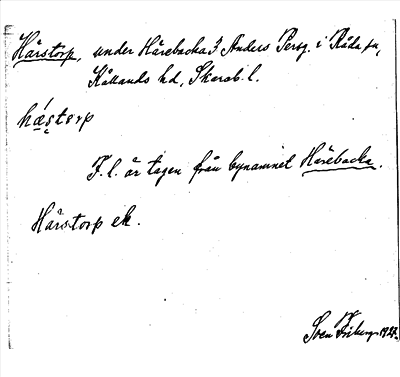 Hårstorp, under Hårebacka 3 Anders Persg. i Råda sn,
Kållands hd, Skarab. l.
hæstorp
F. l. är tagen från bynamnet Hårebacka.
Hårstorp ek.
Sven Friberg 1927.